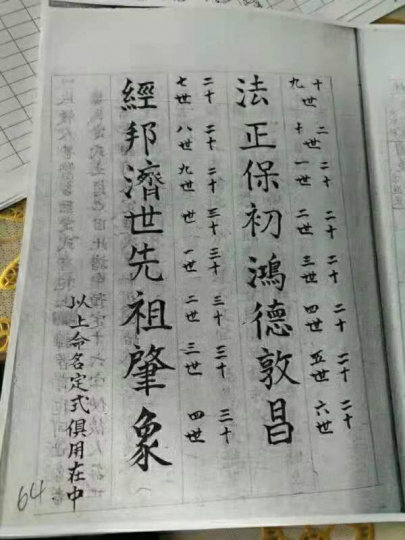 法正保初鴻德敦昌
十九世
二十世
二十一世
二十二世
二十三世
二十四世
二十五世
二十六世
經邦濟世先祖肇象
二十七世
二十八世
二十九世
三十世
三十一世
三十二世
三十三世
三十四世
以上命名定式俱用在中
64